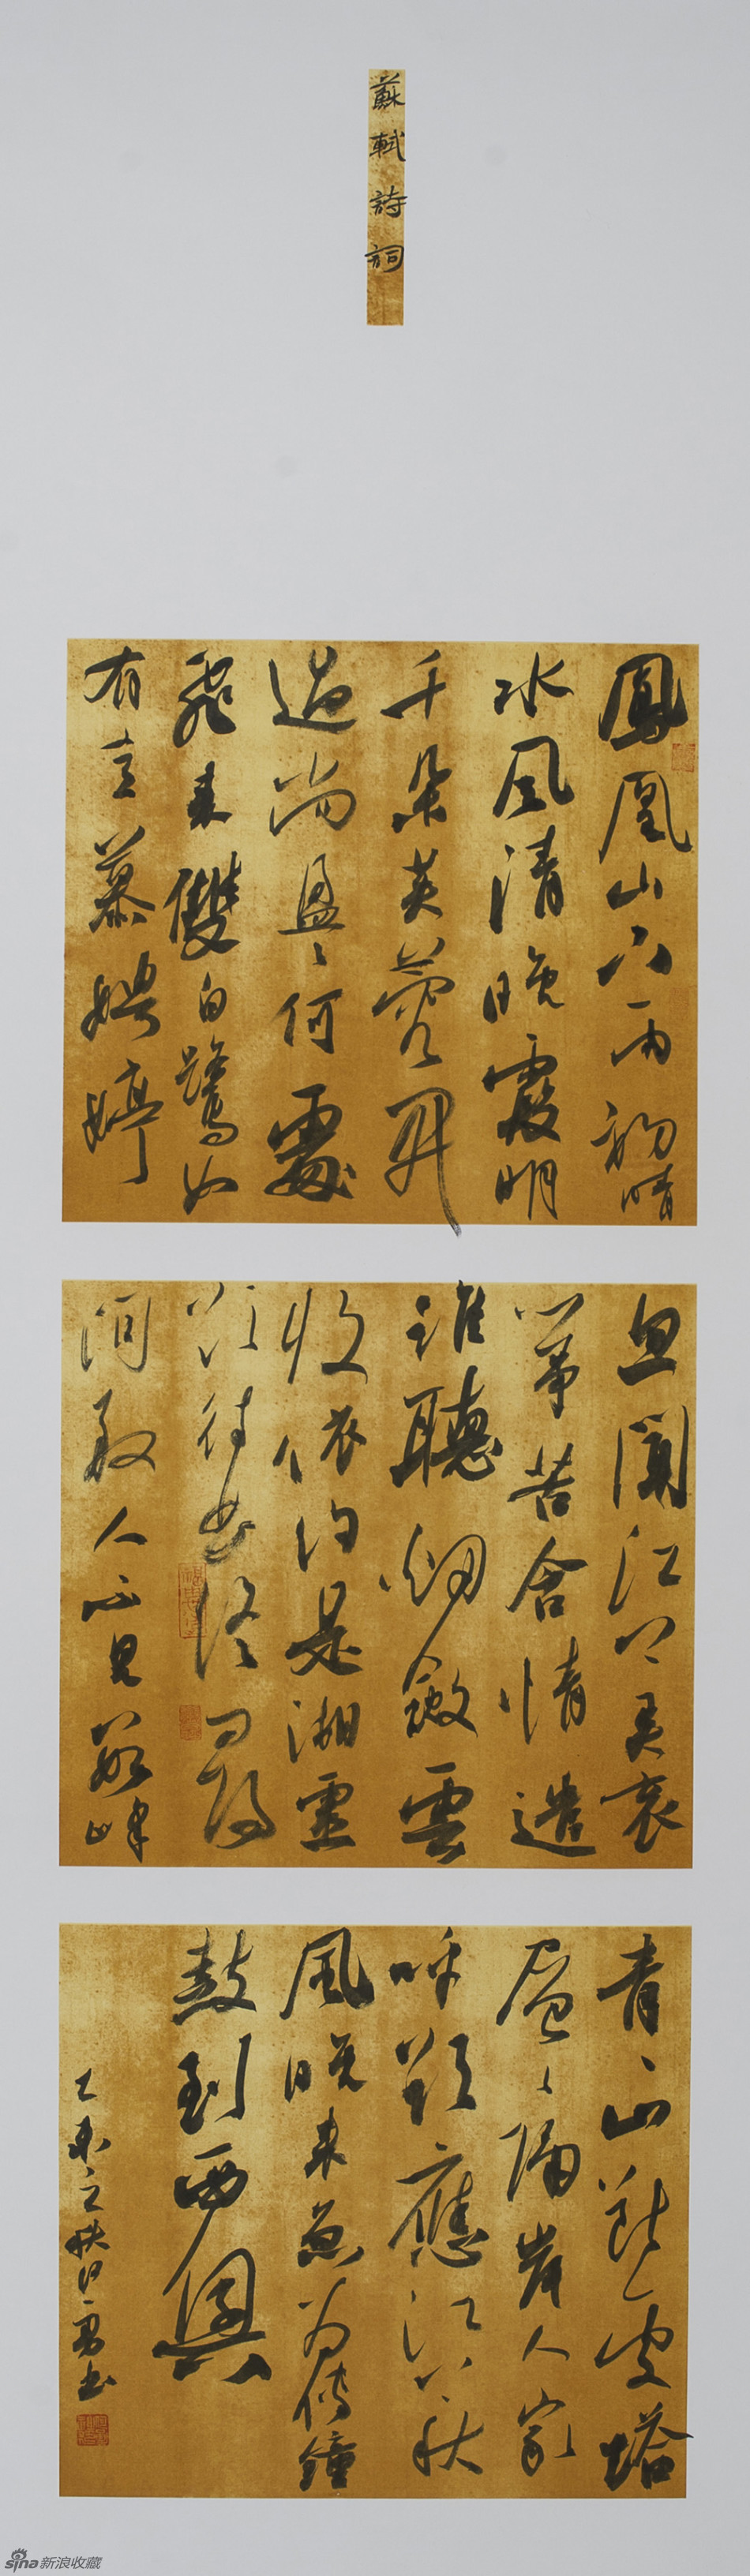 蘇軾詩詞
鳳凰山下雨初晴
水風清晚霞明
千朵芙蓉開
過尚盈々何處
飛來雙白鷺如
有意慕娉婷
忽聞江上弄哀
箏苦含情遣
誰聽烟斂雲
收依約是湘靈
欲待曲終尋
問取人不見數峰
青々山斷處塔
層々隔岸人家
呼欲應江上秋
風晚來急為傳鐘
鼓到西興
乙未之秋 勇書
sina新浪收藏